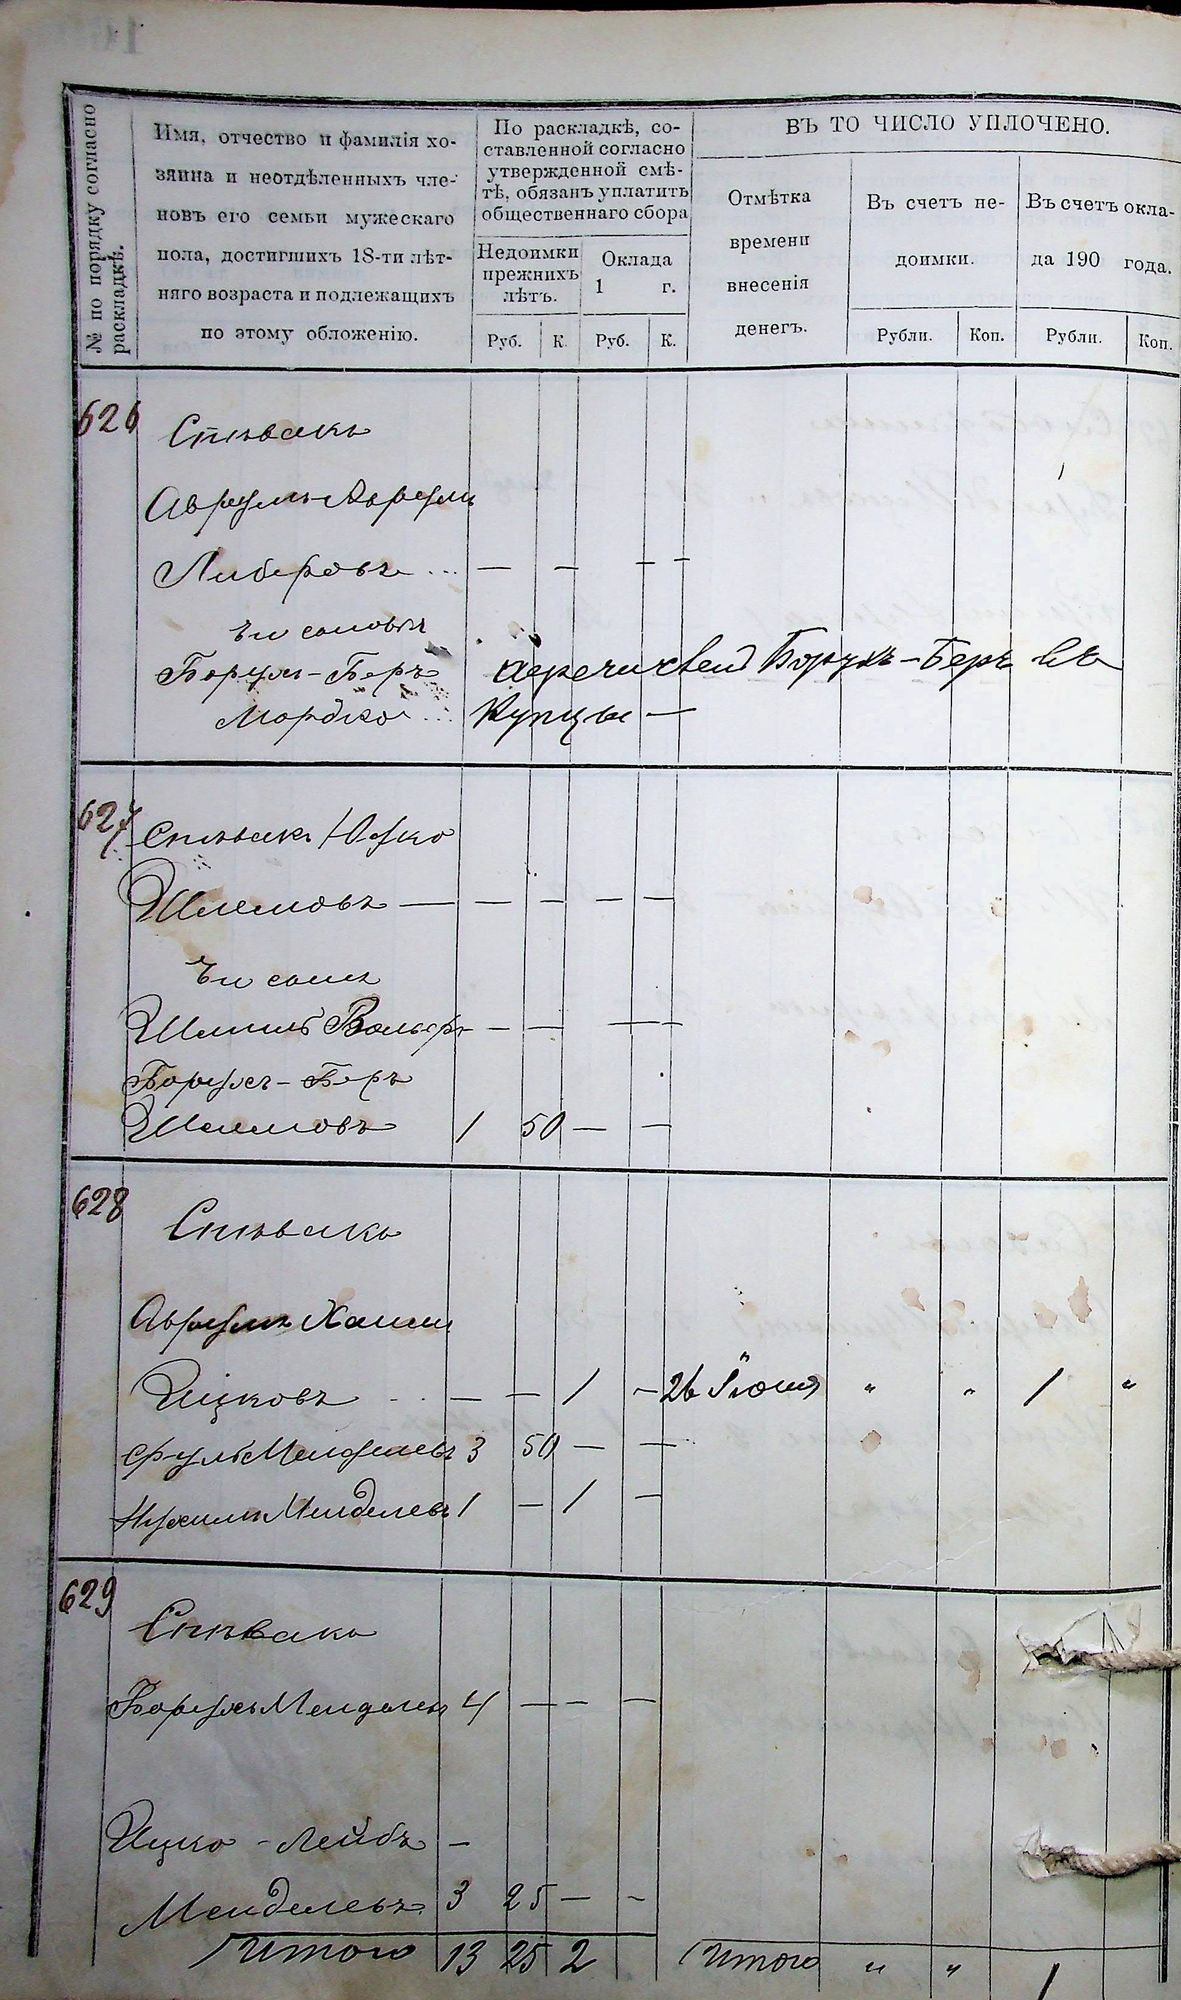 № по порядку согласно раскладкѣ.
Имя, отчество и фамилія хо-
зяина и неотдѣленныхъ чле-
новъ его семьи мужескаго
пола, достигшихъ 18-ти лѣт-
няго возраста и подлежащихъ
по этому обложенію.
По раскладкѣ, со-
ставленной согласно
утвержденной смѣ-
тѣ, обязанъ уплатить
общественнаго сбора
Недоимки
прежнихъ
лѣтъ.
Оклада
1 г.
Руб. К. Руб. К.
ВЪ ТО ЧИСЛО УПЛОЧЕНО.
Отмѣтка
времени
внесенія
денегъ.
Въ счетъ не-
доимки.
Въ счетъ окла-
да 190 года.
Рубли. Коп. Рубли. Коп.
626 Спѣвакъ
Аврумъ
Либеровъ ... — — — —
сыновья
Борухъ-Беръ перечисленъ Борухъ-Беръ въ
Мордко ... Купцы —
627 Спѣвакъ Юфко
Шлемовъ — — — — —
сынъ
Вольфъ — — — —
Борухъ-Беръ
Шлемовъ 1 50 — —
628 Спѣвакъ
Аврумъ Хаим
Ицковъ — — 1 — 26 Іюня " " 1 "
Менделевъ 3 50 — —
Нухимъ Менделевъ 1 — 1 —
629 Спѣвакъ
Борухъ Менделевъ 4 — — —
Ицко - Лейбъ —
Менделевъ 3 25 — —
Итого 13 25 2 Итого " " 1